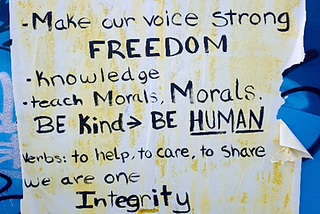 -Make our voice strong
FREEDOM
-Knowledge
-teach Morals, Morals.
BE Kind→ BE HUMAN
Verbs: to help, to care, to share
we are one
Integrity